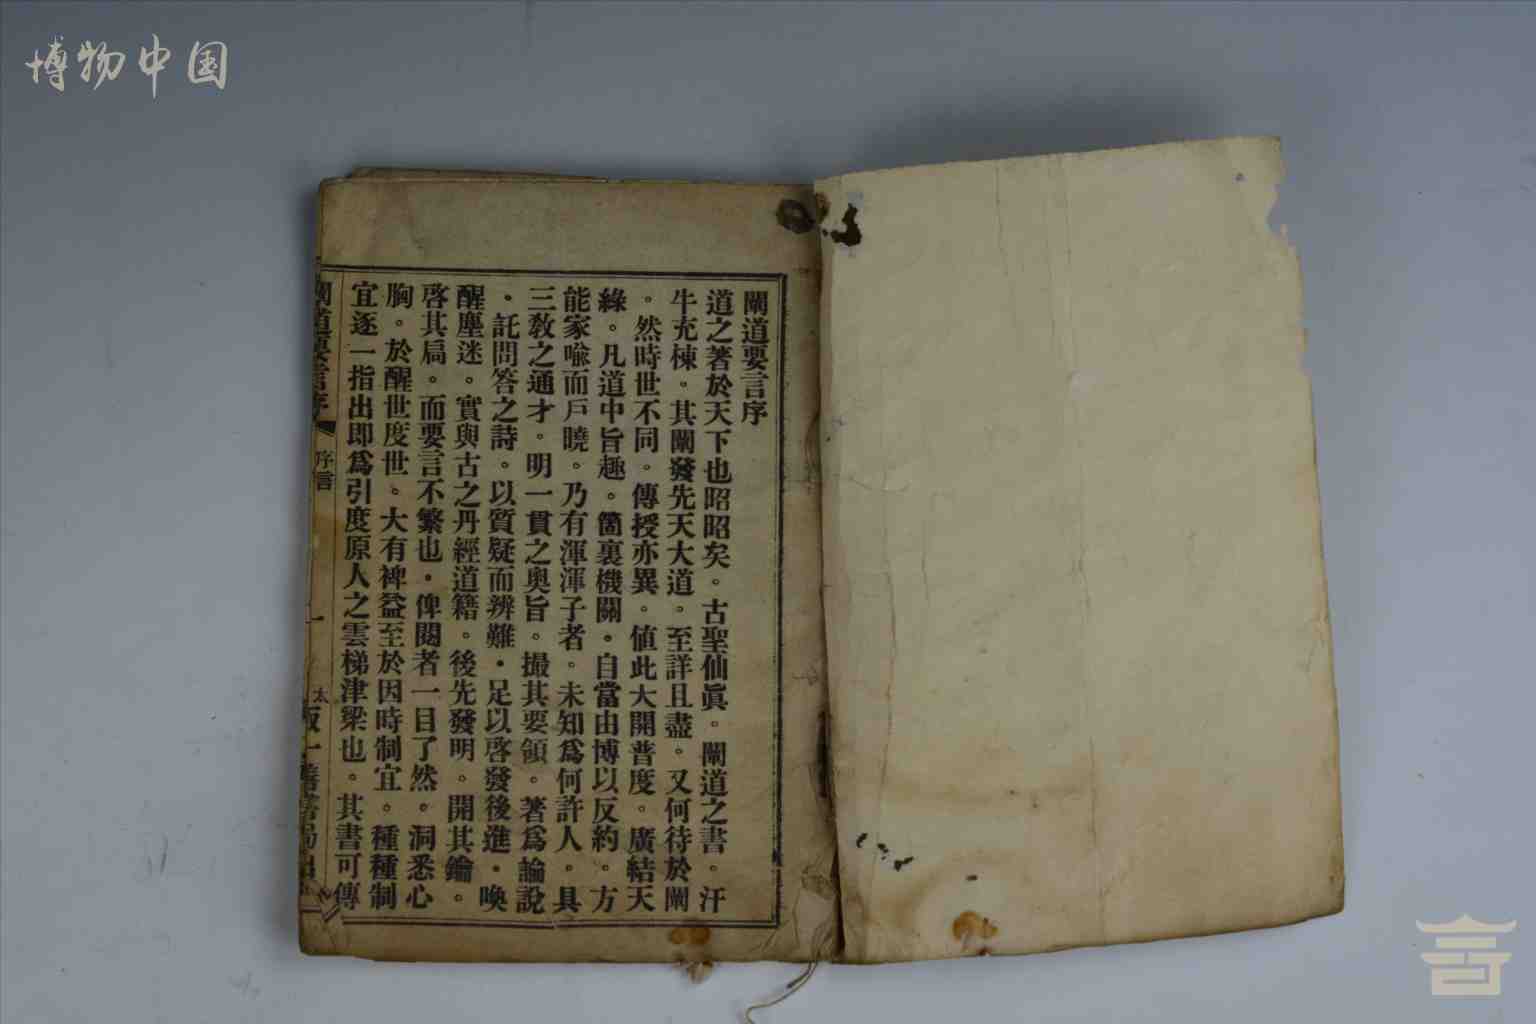 博物中国
闡道要言序
道之著於天下也昭昭矣。古聖仙眞。闡道之書。汗
牛充棟。其闡發先天大道。至詳且盡。又何待於闡
。然時世不同。傳授亦異。値此大開普度。廣結天
緣。凡道中旨趣。箇裏機關。自當由博以反約。方
能家喩而戶曉。乃有渾渾子者。未知爲何許人。具
三敎之通才。明一貫之奧旨。撮其要領。著爲論說
。託問答之詩。以質疑而辨難。足以啓發後進。喚
醒塵迷。實與古之丹經道籍。後先發明。開其鑰。
啓其扃。而要言不繁也。俾閱者一目了然。洞悉心
胸。於醒世度世。大有裨益至於因時制宜。種種制
宜逐一指出即爲引度原人之雲梯津梁也。其書可傳
闡道要言序
序言
一